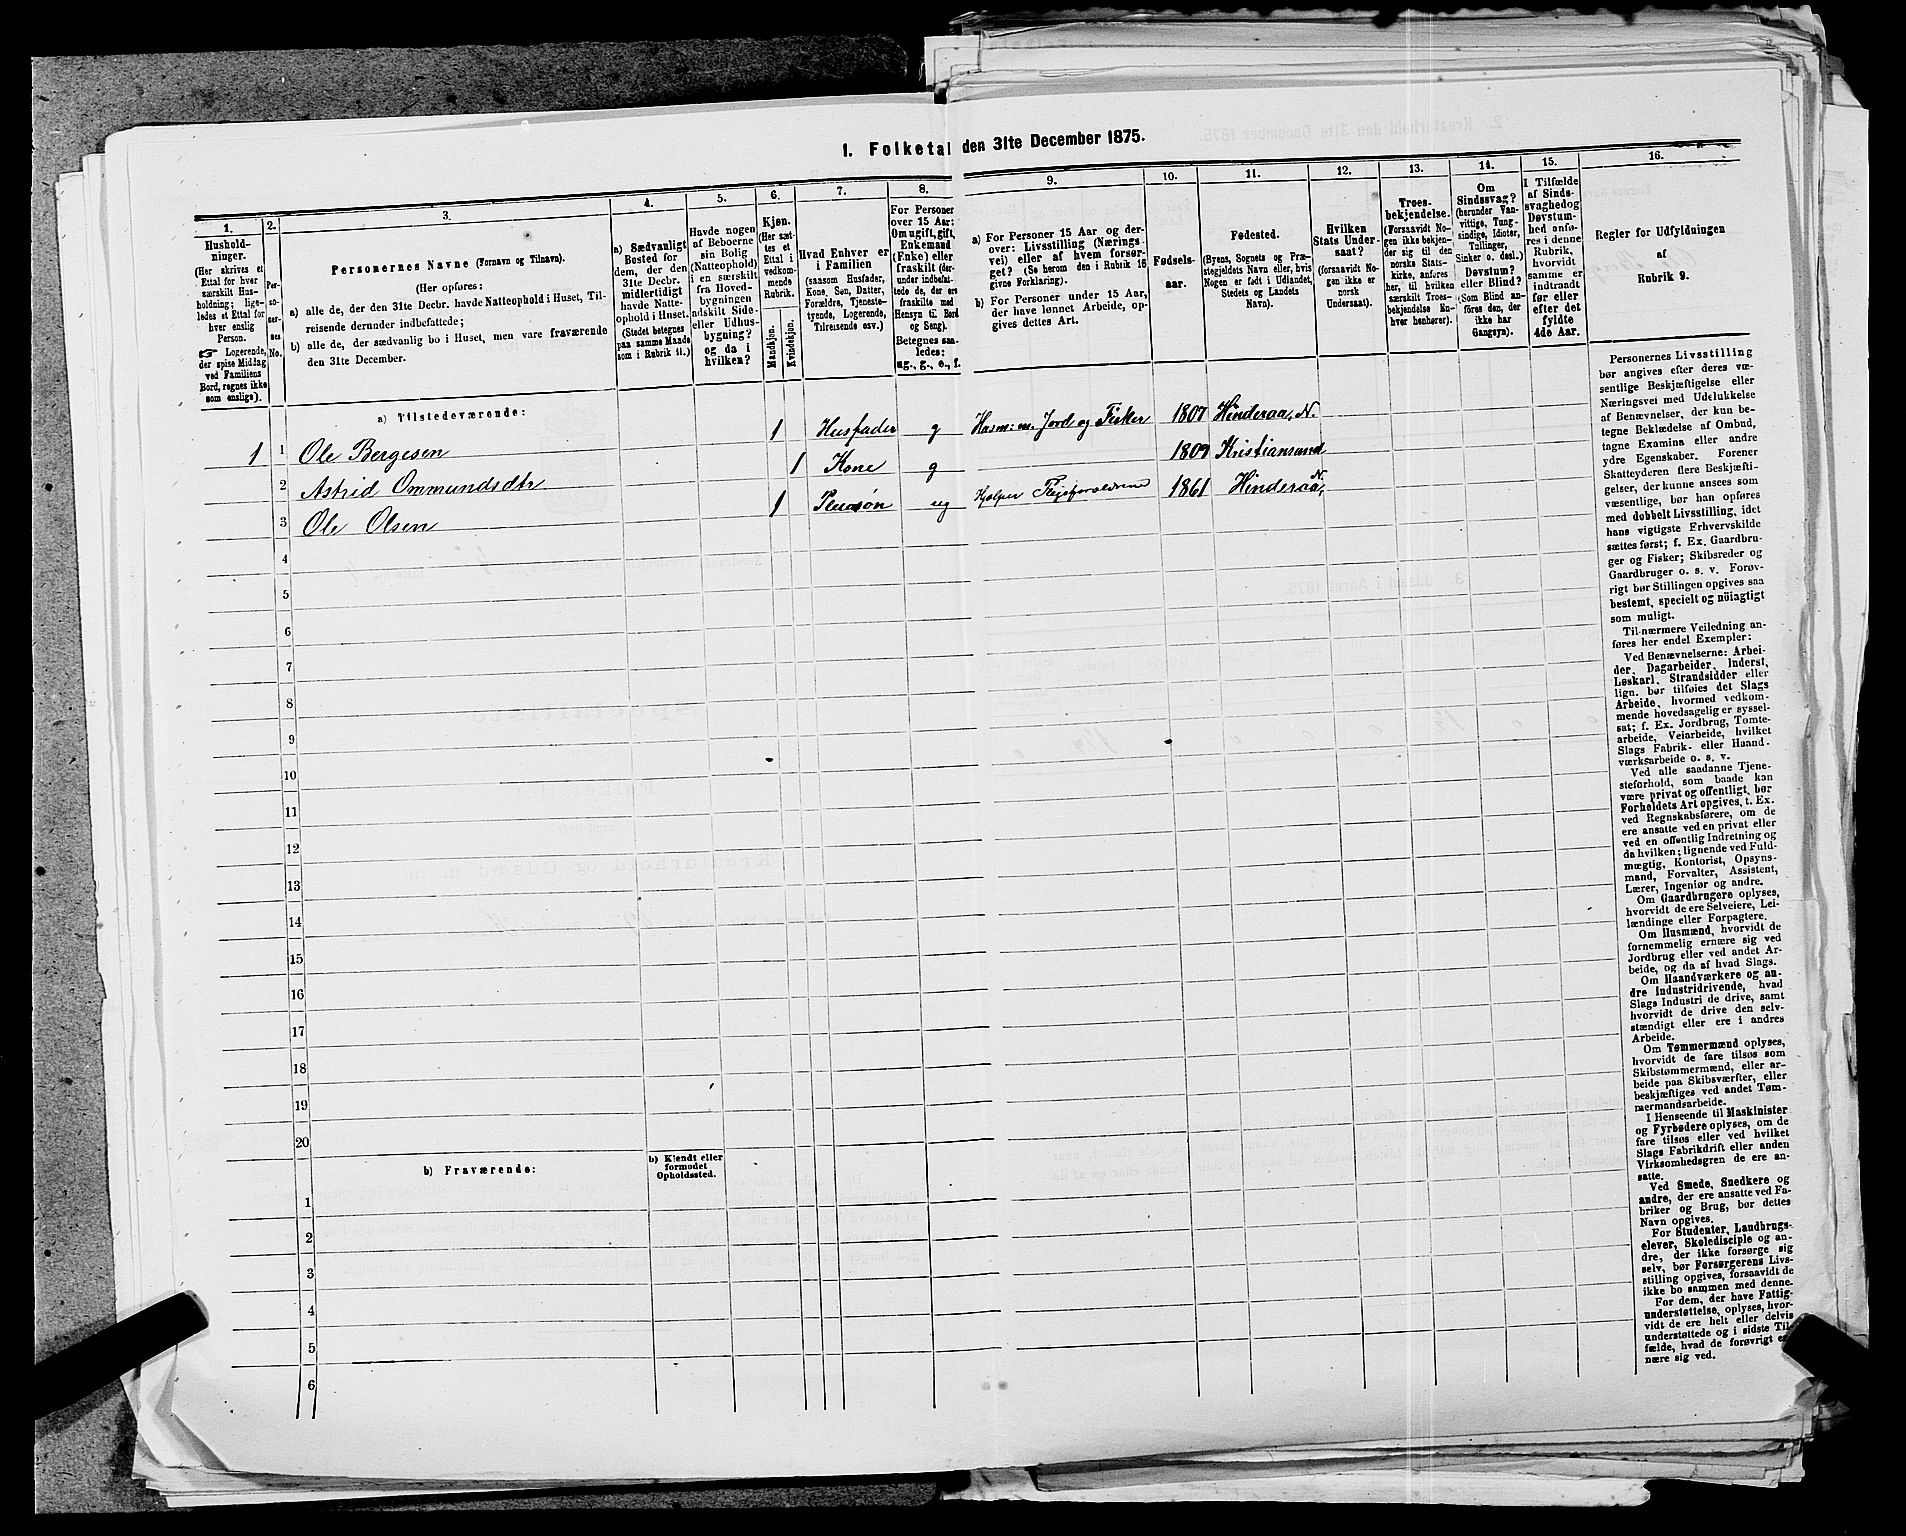 1. Folketal den 31te December 1875.
1.
Hushold-
ninger.
(Her skrives et
Ettal for hver
særskilt Hus-
holdning; lige-
ledes et Ettal for
hver enslig
Person.
☞ Logerende,
der spise Middag
ved Familiens
Bord, regnes ikke
som enslige).
2.
Per-
so-
ner-
nes
No.
3.
Personernes Navne (Fornavn og Tilnavn).
(Her opføres:
a) alle de, der den 31te Decbr. havde Natteophold i Huset, Til-
reisende derunder indbefattede;
b) alle de, der sædvanlig bo i Huset, men vare fraværende
den 31te December.
4.
a) Sædvanligt
Bosted for
dem, der den
31te Decbr.
midlertidigt
havde Natte-
ophold i Huset.
(Stedet betegnes
paa samme Maade
som i Rubrik 11.)
5.
Havde nogen
af Beboerne
sin Bolig
(Natteophold)
i en særskilt
fra Hoved-
bygningen
adskilt Side-
eller Udhus-
bygning?
og da i
hvilken?
6.
Kjøn.
(Her sæt-
tes et
Ettal i
vedkom-
mende
Rubrik.
Mandkjøn.
Kvindekjøn.
7.
Hvad Enhver er
i Familien
(saasom Husfader,
Kone, Søn, Datter,
Forældre, Tjeneste-
tyende, Logerende,
Tilreisende osv.)
8.
For Personer
over 15 Aar:
Om ugift, gift,
Enkemand
(Enke) eller
fraskilt (der-
under indbefat-
tede de, der ere
fraskilte med
Hensyn til Bord
og Seng).
Betegnes saa-
ledes:
ug., g., e., f.
9.
a) For Personer 15 Aar og der-
over: Livsstilling (Nærings-
vei) eller af hvem forsør-
get? (Se herom den i Rubrik 16
givne Forklaring).
b) For Personer under 15 Aar,
der have lønnet Arbeide, op-
gives dettes Art.
10.
Fødsels-
aar.
11.
Fødested.
(Byens, Sognets og Præ-
stegjeldets Navn eller, hvis
Nogen er født i Udlandet,
Stedets og Landets
Navn).
12.
Hvilken
Stats Under-
saat?
(forsaavidt No-
gen ikke er
norsk
Undersaat).
13.
Troes-
bekjendelse.
(Forsaavidt No-
gen ikke bekjen-
der sig til den
norske Stats-
kirke, anføres
her, til hvilken
særskilt Troes-
bekjendelse En-
hver henhører).
14.
Om
Sindssvag?
(herunder Van-
vittige, Tung-
sindige, Idioter,
Tullinger,
Sinker o. desl.)
Døvstum?
eller Blind?
(Som Blind an-
føres den, der
ikke har
Gangsyn).
15.
I Tilfælde
af Sinds-
svaghed og
Døvstum-
hed anfø-
res i denne
Rubrik,
hvorvidt
samme er
indtraadt
før eller
efter det
fyldte
4de Aar.
16.
Regler for Udfyldningen
af
Rubrik 9.
a) Tilstedeværende:
1 1 Ole Bergesen 1 Husfader g Husm: m. Jord og Fisker 1807 Hinderaa, N.
2 Astrid Ommundsdtr 1 Kone g 1809 Kristiansund
3 Ole Olsen 1 Pleiesøn ug Hjælper Pleieforældrene 1861 Hinderaa, N.
4
5
6
7
8
9
10
11
12
13
14
15
16
17
18
19
20
b) Fraværende:
b) Kjendt eller
formodet
Opholdssted.
1
2
3
4
5
6
Personernes Livsstilling
bør angives efter deres væ-
sentlige Beskjæftigelse eller
Næringsvei med Udelukkelse
af Benævnelser, der kun be-
tegne Beklædelse af Ombud,
tagne Examina eller andre
ydre Egenskaber. Forener
Skatteyderen flere Beskjæfti-
gelser, der kunne ansees som
væsentlige, bør han opføres
med dobbelt Livsstilling, idet
hans vigtigste Erhvervskilde
sættes først; f. Ex. Gaardbru-
ger og Fisker; Skibsreder og
Gaardbruger o. s. v. Forøv-
rigt bør Stillingen opgives saa
bestemt, specielt og nöiagtigt
som muligt.
Til nærmere Veiledning an-
føres her endel Exempler:
Ved Benævnelserne: Arbei-
der, Dagarbeider, Inderst,
Løskarl, Strandsidder eller
lign. bør tilføies det Slags
Arbeide, hvormed vedkom-
mende hovedsagelig er syssel-
sat; f. Ex. Jordbrug, Tomte-
arbeide, Veiarbeide, hvilket
Slags Fabrik- eller Haand-
værksarbeide o. s. v.
Ved alle saadanne Tjene-
steforhold, som baade kan
være privat og offentligt, bør
Forholdets Art opgives, t. Ex.
ved Regnskabsførere, om de
ere ansatte ved en privat eller
ved en offentlig Indretning og
da hvilken; lignende ved Fuld-
mægtig, Kontorist, Opsyns-
mand, Forvalter, Assistent,
Lærer, Ingeniør og andre.
Om Gaardbrugere oplyses,
hvorvidt de ere Selveiere, Lei-
lændinge eller Forpagtere.
Om Husmænd, hvorvidt de
fornemmelig ernære sig ved
Jordbrug eller ved andet Ar-
beide, og da af hvad Slags.
Om Haandværkere og an-
dre Industridrivende, hvad
Slags Industri de drive, samt
hvorvidt de drive den selv-
stændigt eller ere i andres
Arbeide.
Om Tømmermænd oplyses,
hvorvidt de fare tilsøs som
Skibstømmermænd, eller ar-
beide paa Skibsværfter, eller
beskjæftiges ved andet Tøm-
mermandsarbeide.
I Henseende til Maskinister
og Fyrbødere oplyses, om de
fare tilsøs eller ved hvilket
Slags Fabrikdrift eller anden
Virksomhedsgren de ere an-
satte.
Ved Smede, Snedkere og
andre, der ere ansatte ved Fa-
briker og Brug, bør dettes
Navn opgives.
For Studenter, Landbrugs-
elever, Skoledisciple og an-
dre, der ikke forsørge sig
selv, bør Forsørgerens Livs-
stilling opgives, forsaavidt de
ikke bo sammen med denne.
For dem, der have Fattig-
understøttelse, oplyses, hvor-
vidt de ere helt eller delvis
understøttede og i sidste Til-
fælde, hvad de forøvrigt er-
nære sig ved.